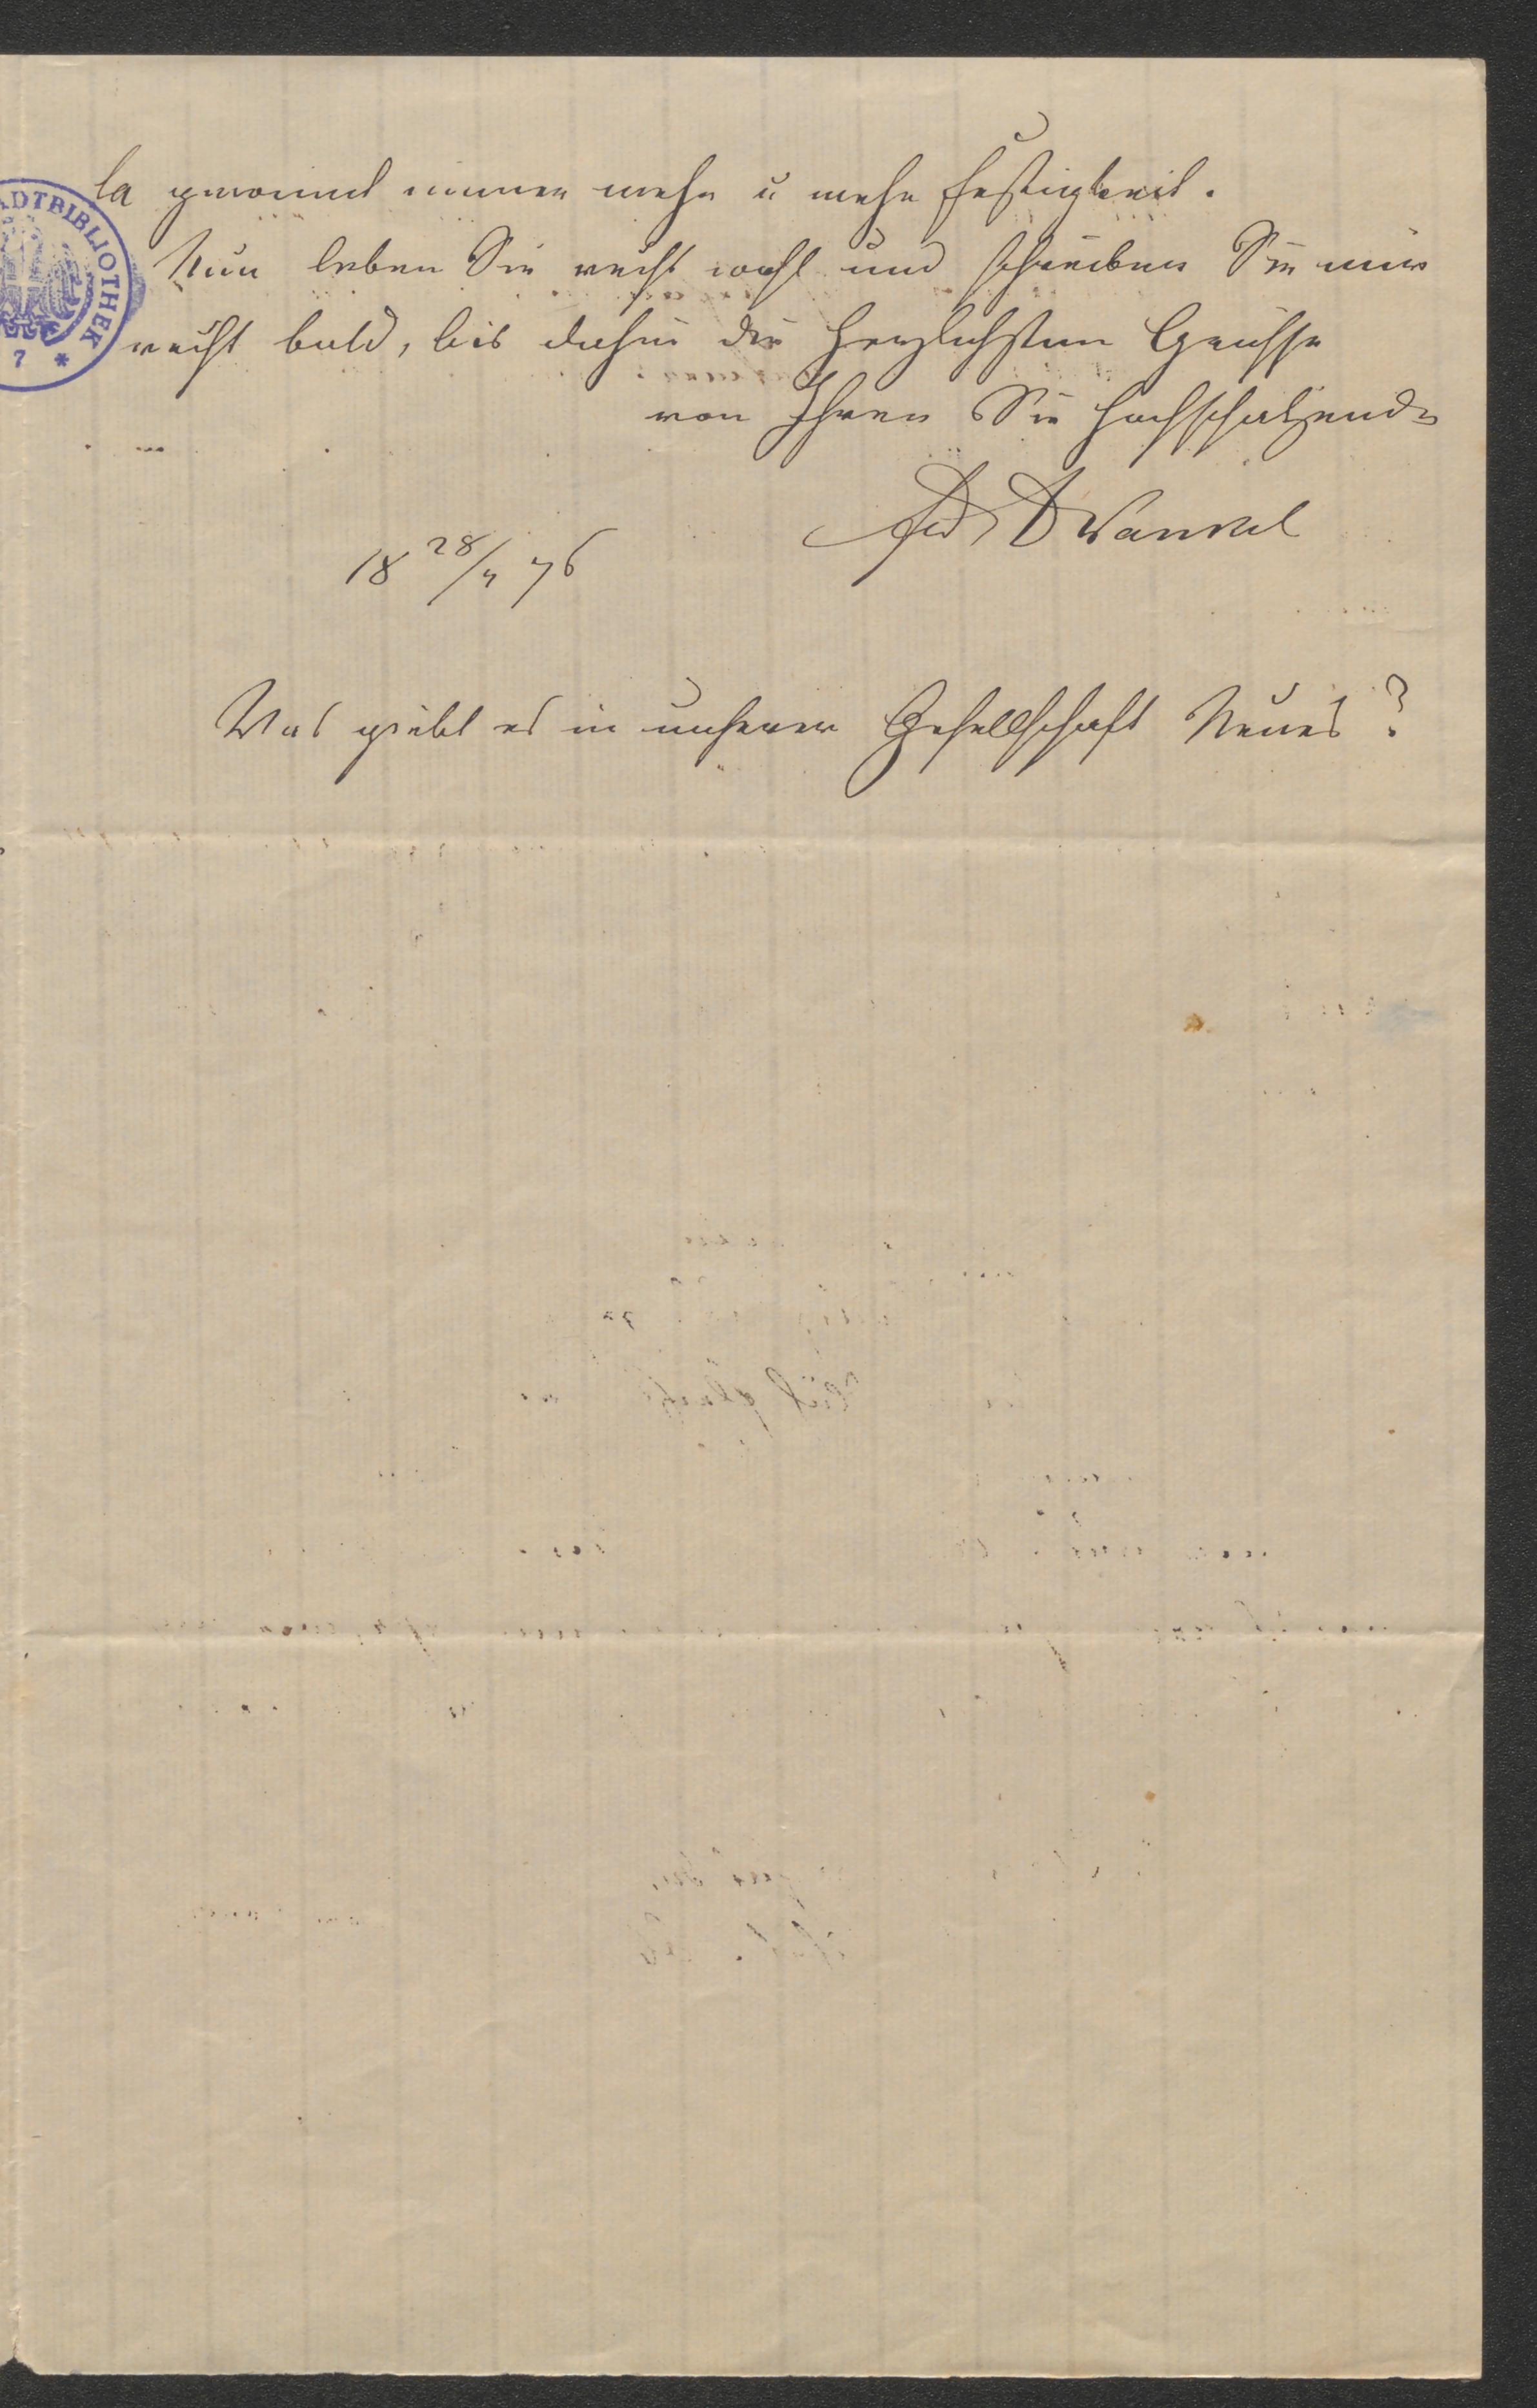 la gewinnt immer mehr u mehr Festigkeit.
Nun leben Sie recht wohl und schreiben Sie mir
recht bald, bis dahin die herzlichsten Grüsse
von Ihren Sie hochschätzenden
D Wankel
18 28/4 76
Was giebt es in unserer Gesellschaft Neues?
ADTBIBLIOTHEK
7 *